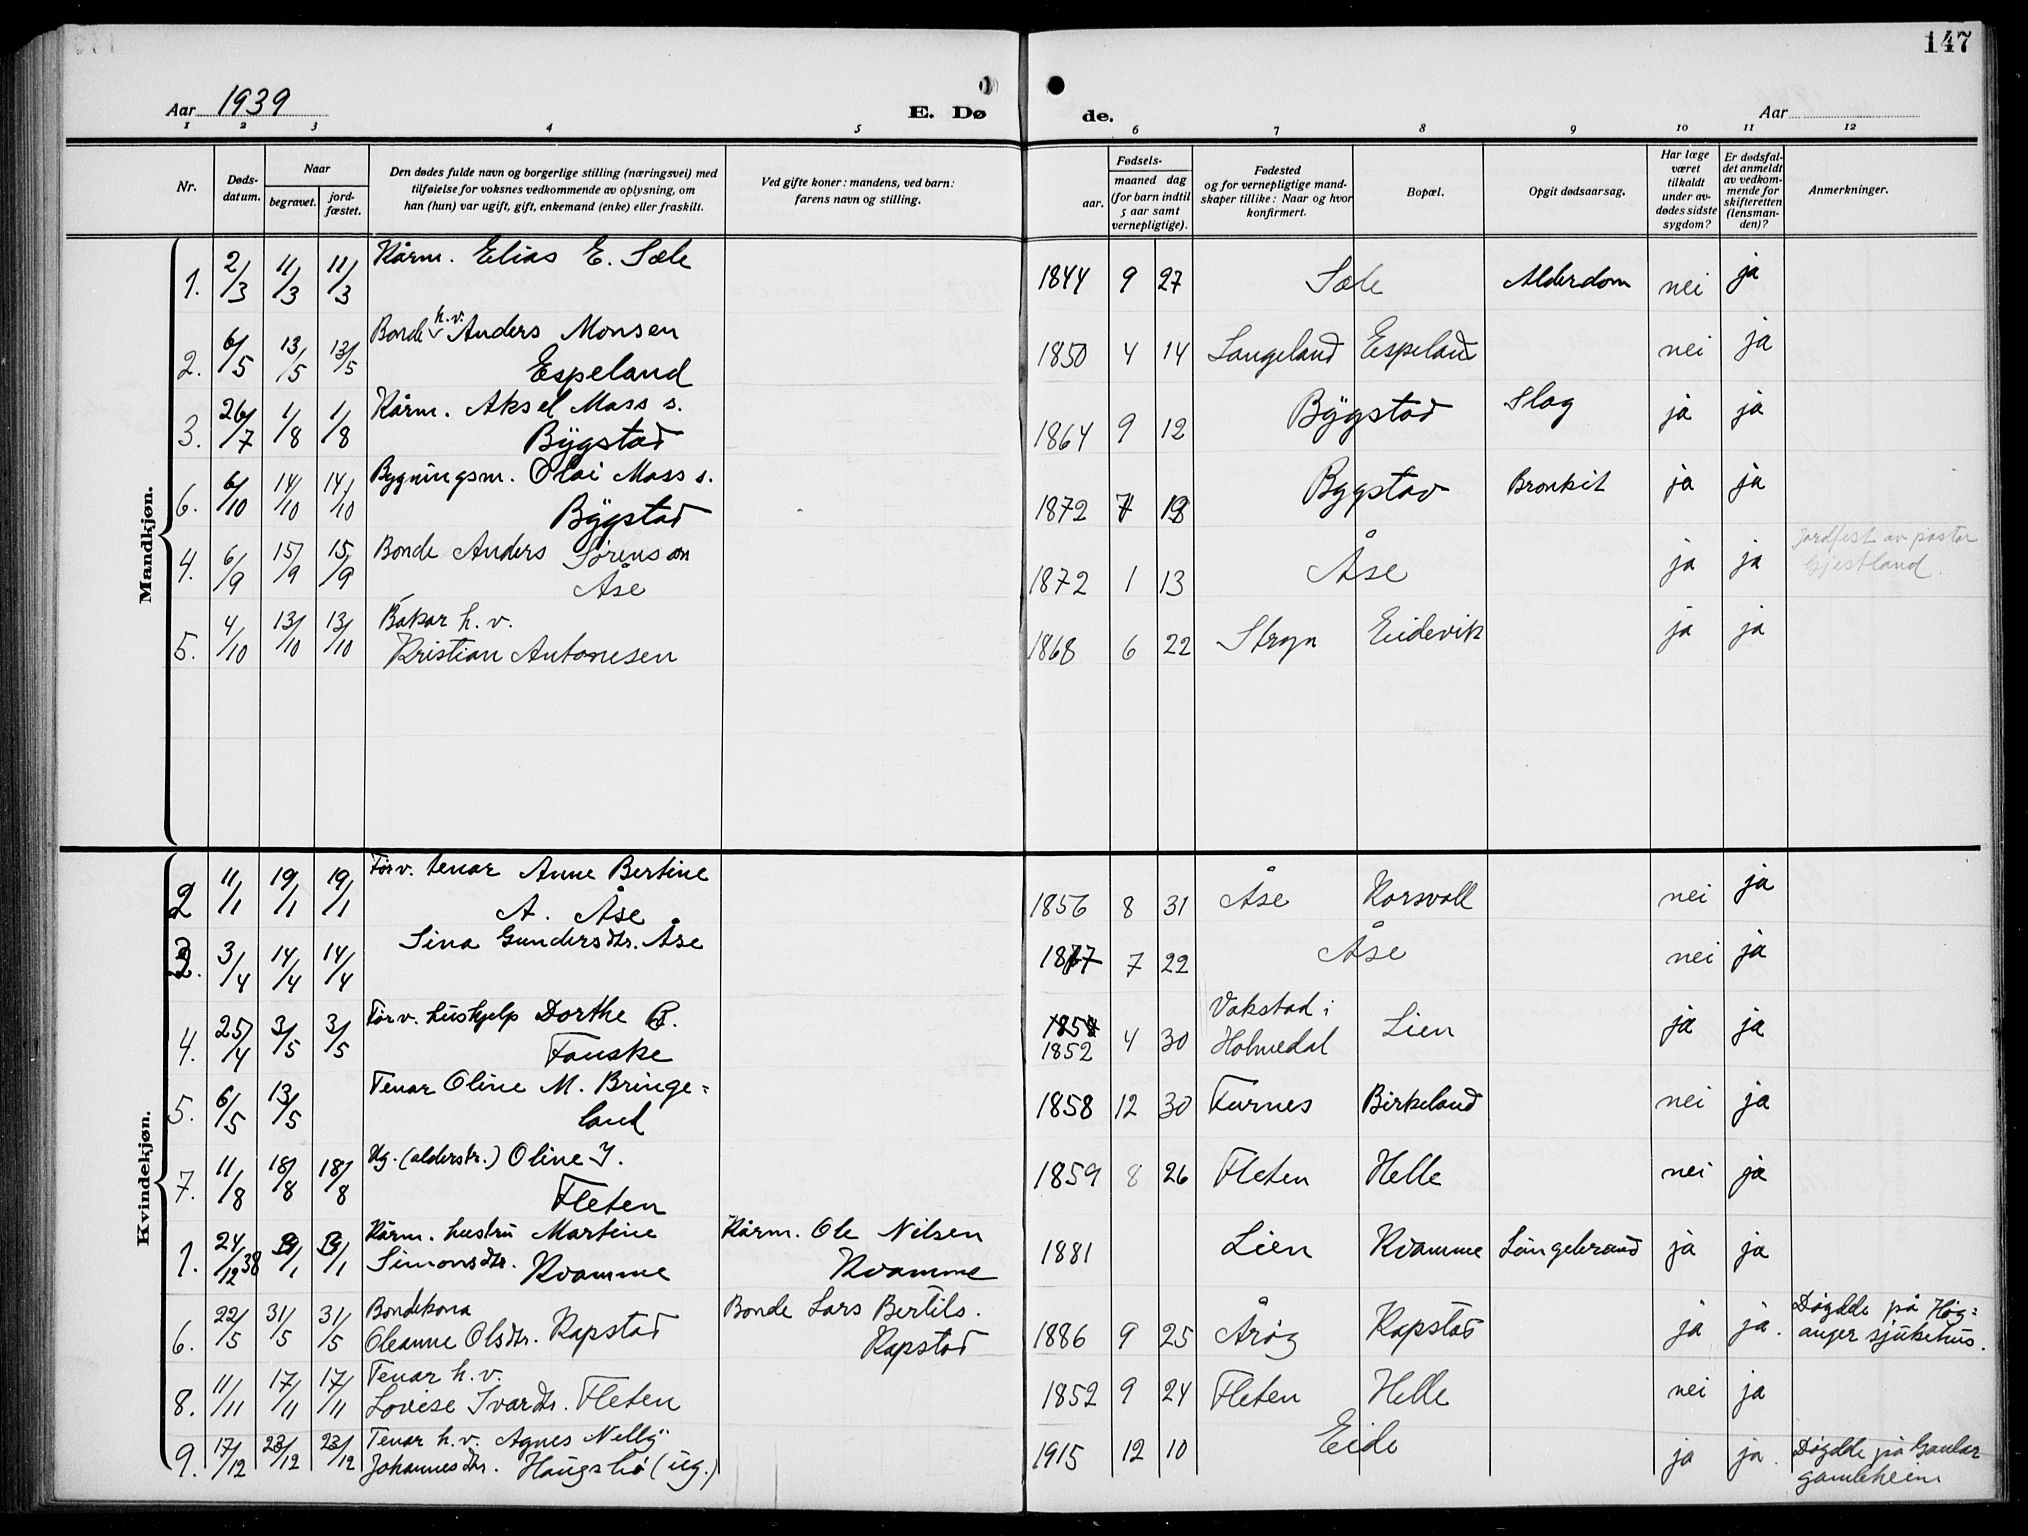 147
Aar 1939
E. Dø de.
Aar
1 2 3 4 5 6 7 8 9 10 11 12
Nr.
Døds-
datum.
Naar
begravet.
jord-
fæstet.
Den dødes fulde navn og borgerlige stilling (næringsvei) med
tilføielse for voksnes vedkommende av oplysning, om
han (hun) var ugift, gift, enkemand (enke) eller fraskilt.
Ved gifte koner: mandens, ved barn:
farens navn og stilling.
Fødsels-
aar.
maaned dag
(for barn indtil
5 aar samt
vernepligtige).
Fødested
og for vernepligtige mand-
skaper tillike: Naar og hvor
konfirmert.
Bopæl.
Opgit dødsaarsag.
Har læge
været
tilkaldt
under av-
dødes sidste
sygdom?
Er dødsfal-
det anmeldt
av vedkom-
mende for
skifteretten
(lensman-
den)?
Anmerkninger.
Mandkjøn.
1. 2/3 11/3 11/3 Kårm. Elias E. Sæle 1844 9 27 Sæle Alderdom nei ja
2. 6/5 13/5 13/5 Bonde h.v. Anders Monsen
Espeland 1850 4 14 Langeland Espeland nei ja
3. 26/7 1/8 1/8 Kårm. Aksel Mass s.
Bygstad 1864 9 12 Bygstad Slag ja ja
6. 6/10 14/10 14/10 Bygningsm. Olai Mass s.
Bygstad 1872 7 Bygstad Bronkit ja ja
4. 6/9 15/9 15/9 Bonde Anders Sørenson
Åse 1872 1 13 Åse ja ja Jordfest av pastor
Gjestland.
5. 4/10 13/10 13/10 Bakar h. v.
Kristian Antonesen 1868 6 22 Stryn Eidevik ja ja
Kvindekjøn.
2 11/1 19/1 19/1 Førv. tenar Anne Bertine
A. Åse 1856 8 31 Åse Korsvoll nei ja
3. 3/4 14/4 14/4 Sina Gundersdtr. Åse 7 22 Åse nei ja
4. 25/4 3/5 3/5 Førv. hushjelp Dorthe
Fauske 1852 4 30 Vakstad i
Holmedal Lien ja ja
5. 6/5 13/5 Tenar Oline M. Bringe=
land 1858 12 30 Furnes Birkeland nei ja
7. 11/8 18/8 18/8 Ug. (alderstr.) Oline I.
Fleten 1859 8 26 Fleten Helle nei ja
1. 24/12 38 Kårm. hustru Martine
Simonsdtr. Kvamme Kårm. Ole Nilsen
Kvamme 1881 Lien Kvamme Lungebrand ja ja
6. 22/5 31/5 31/5 Bondekona
Oleanne Olsdtr. Rapstad Bonde Lars Bertils.
Rapstad 1886 9 25 Årøy Rapstad ja ja. Døydde på Høy=
anger sjukehus.
8. 11/11 17/11 17/11 Tenar h. v.
Lovise Ivardtr. Fleten 1852 9 24 Fleten Helle nei ja
9. 17/12 23/12 23/12 Tenar h. v. Agnes Nelly
Johannesdtr. Haugsbø (ug.) 1915 12 10 Eide ja ja. Døydde på Gaular
gamleheim